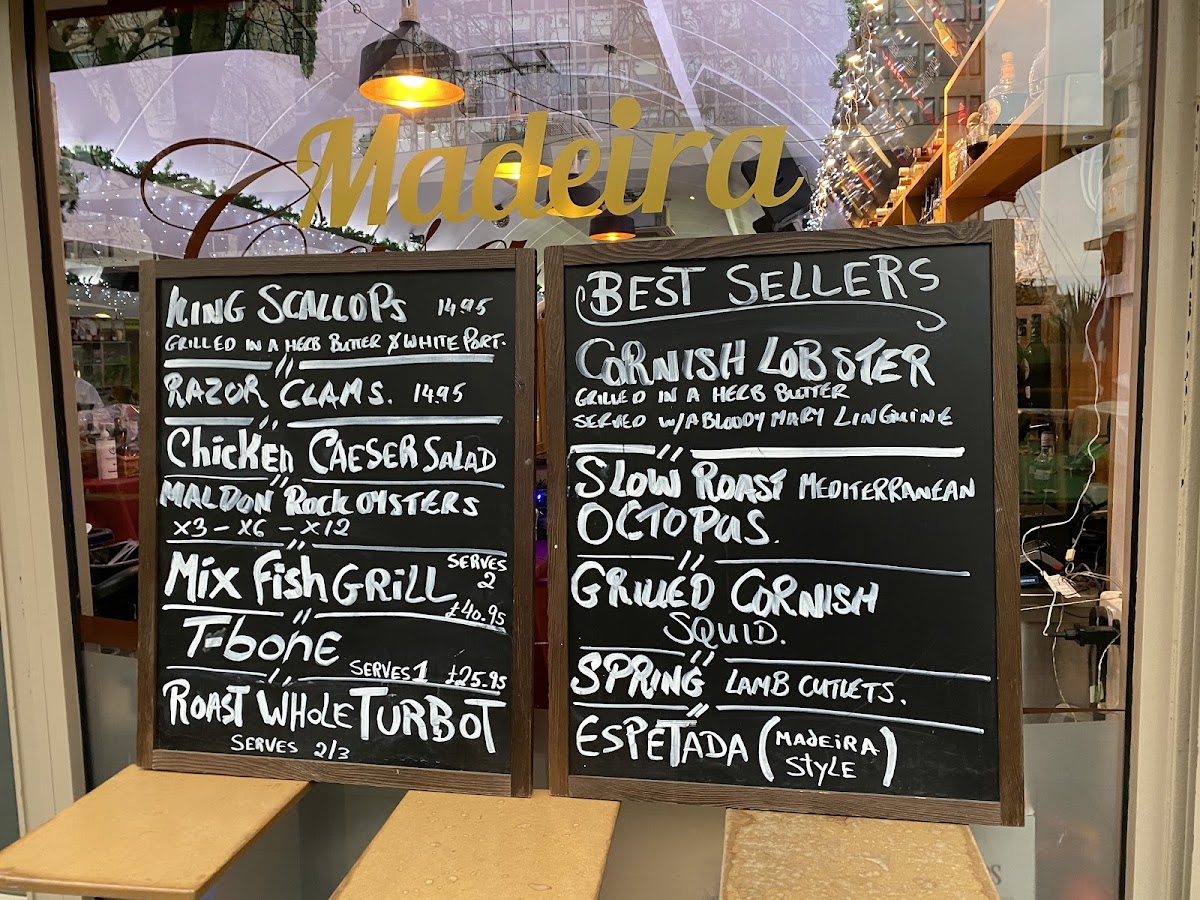 Madeira
KING SCALLOPS 14.95
GRILLED IN A HERB BUTTER & WHITE PORT.
RAZOR CLAMS. 14.95
Chicken CAESER SALAD
MALDON ROCK OYSTERS
X3 - X6 - X12
Mix Fish GRILL SERVES 2
£40.95
T-bone SERVES 1 £25.95
ROAST WHOLE TURBOT
SERVES 2/3
BEST SELLERS
CORNISH LOBSTER
GRILLED IN A HERB BUTTER
SERVED W/A BLOODY MARY LINGUINE
SLOW ROAST MEDITERRANEAN
OCTOPUS.
GRILLED CORNISH
SQUID.
SPRING LAMB CUTLETS.
ESPETADA (MADEIRA STYLE)